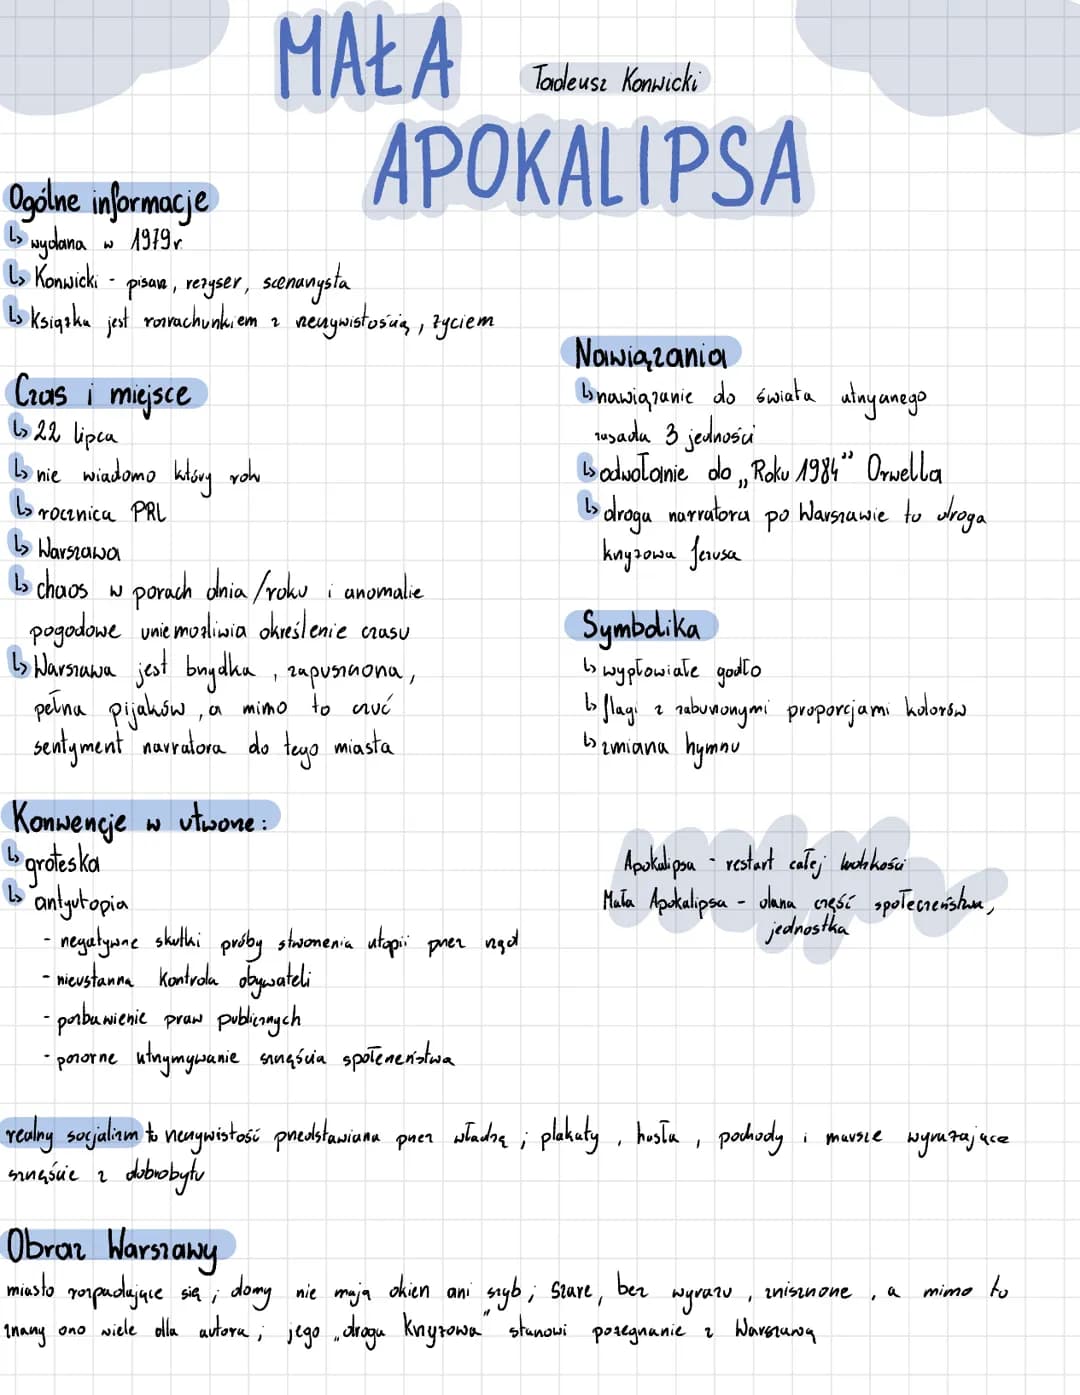 MAŁA
Tadeusz Konwicki
APOKALIPSA
Ogólne informacje
↳ wydana w 1979r.
↳ Konwicki - pisarz, reżyser, scenarzysta
↳ Książka jest rozrachunkiem z rzeczywistością, życiem
Czas i miejsce
↳ 22 lipca
↳ nie wiadomo który rok
↳ rocznica PRL
↳ Warszawa
↳ chaos w porach dnia/roku i anomalie
pogodowe uniemożliwia określenie czasu
↳ Warszawa jest brzydka, zapuszczona,
pełna pijaków, a mimo to czuć
sentyment narratora do tego miasta
Nawiązania
↳ nawiązanie do świata antycznego
zasada 3 jedności
↳ odwołanie do „Roku 1984” Orwella
↳ droga narratora po Warszawie to droga
krzyżowa Jezusa
Symbolika
↳ wypłowiałe godło
↳ flagi z zaburzonymi proporcjami kolorów
↳ zmiana hymnu
Konwencje w utworze:
↳ groteska
↳ antyutopia
- negatywne skutki próby stworzenia utopii przez rząd
- nieustanna kontrola obywateli
- pozbawienie praw publicznych
- pozorne utrzymywanie szczęścia społeczeństwa
Apokalipsa - restart całej ludzkości
Mała Apokalipsa - dana część społeczeństwa,
jednostka
realny socjalizm to rzeczywistość przedstawiana przez władzę; plakaty, hasła, pochody i marsze wyrażające
szczęście z dobrobytu
Obraz Warszawy
miasto rozpadające się; domy nie mają okien ani szyb; szare, bez wyrazu, zniszczone, a mimo to
znany ono wiele dla autora; jego „droga krzyżowa” stanowi pożegnanie z Warszawą